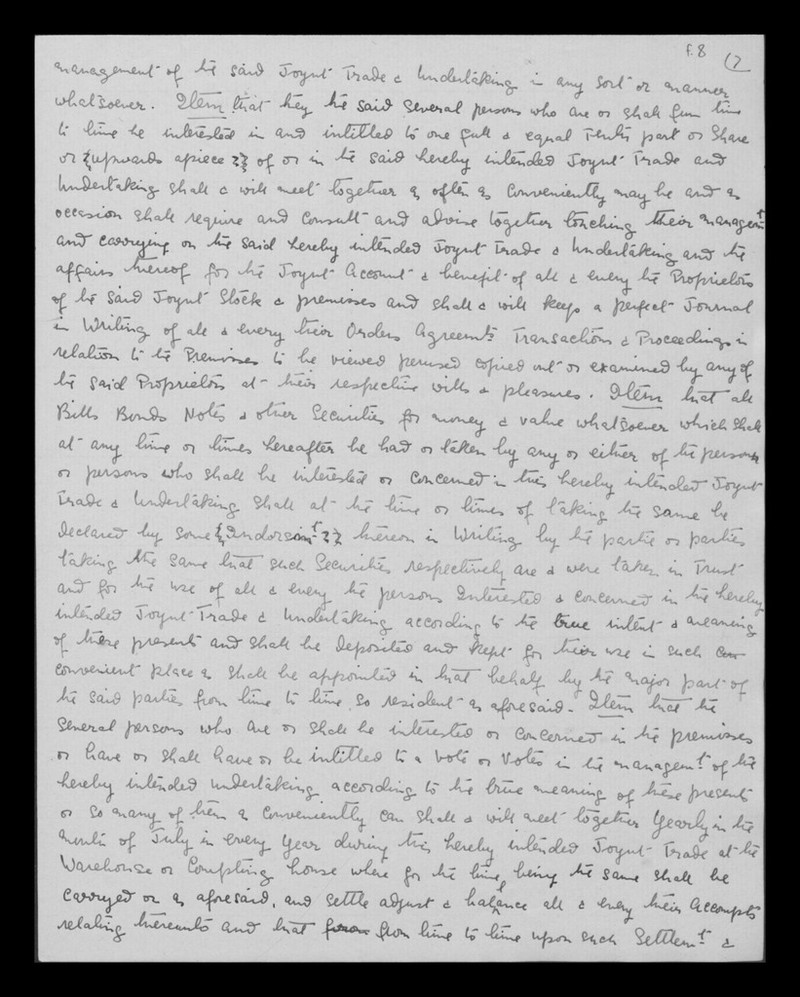 f.8 (7
management of the said Joynt Trade & Undertaking in any sort or manner
whatsoever. Item that they the said several persons who are or shall from time
to time be interested in and intitled to one full & equal Tenth part or Share
or {upwards apiece ??} of or in the said hereby intended Joynt Trade and
Undertaking shall & will meet together as often as Conveniently may be and as
occasion shall require and Consult and advise together touching their managemt
and carrying on the said hereby intended Joynt Trade & Undertaking and the
affairs thereof for the Joynt Account & benefit of all & every the Proprietors
of the said Joynt Stock & premisses and shall & will keep a perfect Journal
in Writing of all & every their Orders Agreemts Transactions & Proceedings in
relation to the Premisses to be viewed perused copied out or examined by any of
the said Proprietors at their respective wills & pleasures. Item that all
Bills Bonds Notes & other Securities for money & value whatsoever which shall
at any time or times hereafter be had or taken by any or either of the person
or persons who shall be interested or concerned in this hereby intended Joynt
Trade & Undertaking shall at the time or times of taking the same be
declared by some {Indorsmt ??} thereon in Writing by the partie or parties
taking the same that such Securities respectively are & were taken in Trust
and for the use of all & every the persons Interested & concerned in the hereby
intended Joynt Trade & Undertaking according to the true intent & meaning
of these presents and shall be deposited and kept for their use in such
convenient place as shall be appointed in that behalf by the major part of
the said parties from time to time so resident as aforesaid. Item that the
several persons who are or shall be interested or concerned in the premisses
or have or shall have or be intitled to a Vote or Votes in the managemt. of the
hereby intended undertaking according to the true meaning of these presents
or so many of them as Conveniently can shall & will meet together Yearly in the
Month of July in every Year during this hereby intended Joynt Trade at the
Warehouse or Compting house where for the time being the same shall be
carryed on as aforesaid, and settle adjust & ballance all & every their Accompts
relating thereunto and that from time to time upon such Settlemt. &